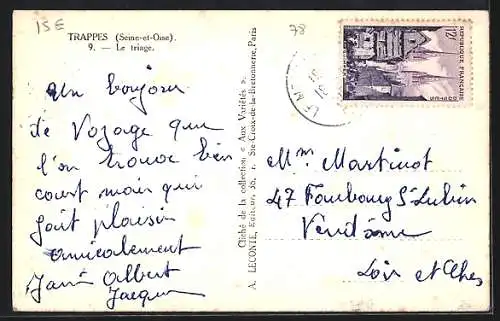 15E
78
TRAPPES (Seine-et-Oise).
9. — Le triage.
Un bonjour
de Voyage que
l'on trouve bien
court mais qui
fait plaisir
amicalement
Albert
Jacques
Cliché de la collection « Aux Variétés ».
A. LECONTE, Editeur, 38, r. Ste-Croix-de-la-Bretonnerie, Paris
12F
REPUBLIQUE FRANÇAISE
QUIMPER
Mme Martinot
47 Faubourg St Lubin
Vendôme
Loir et Cher